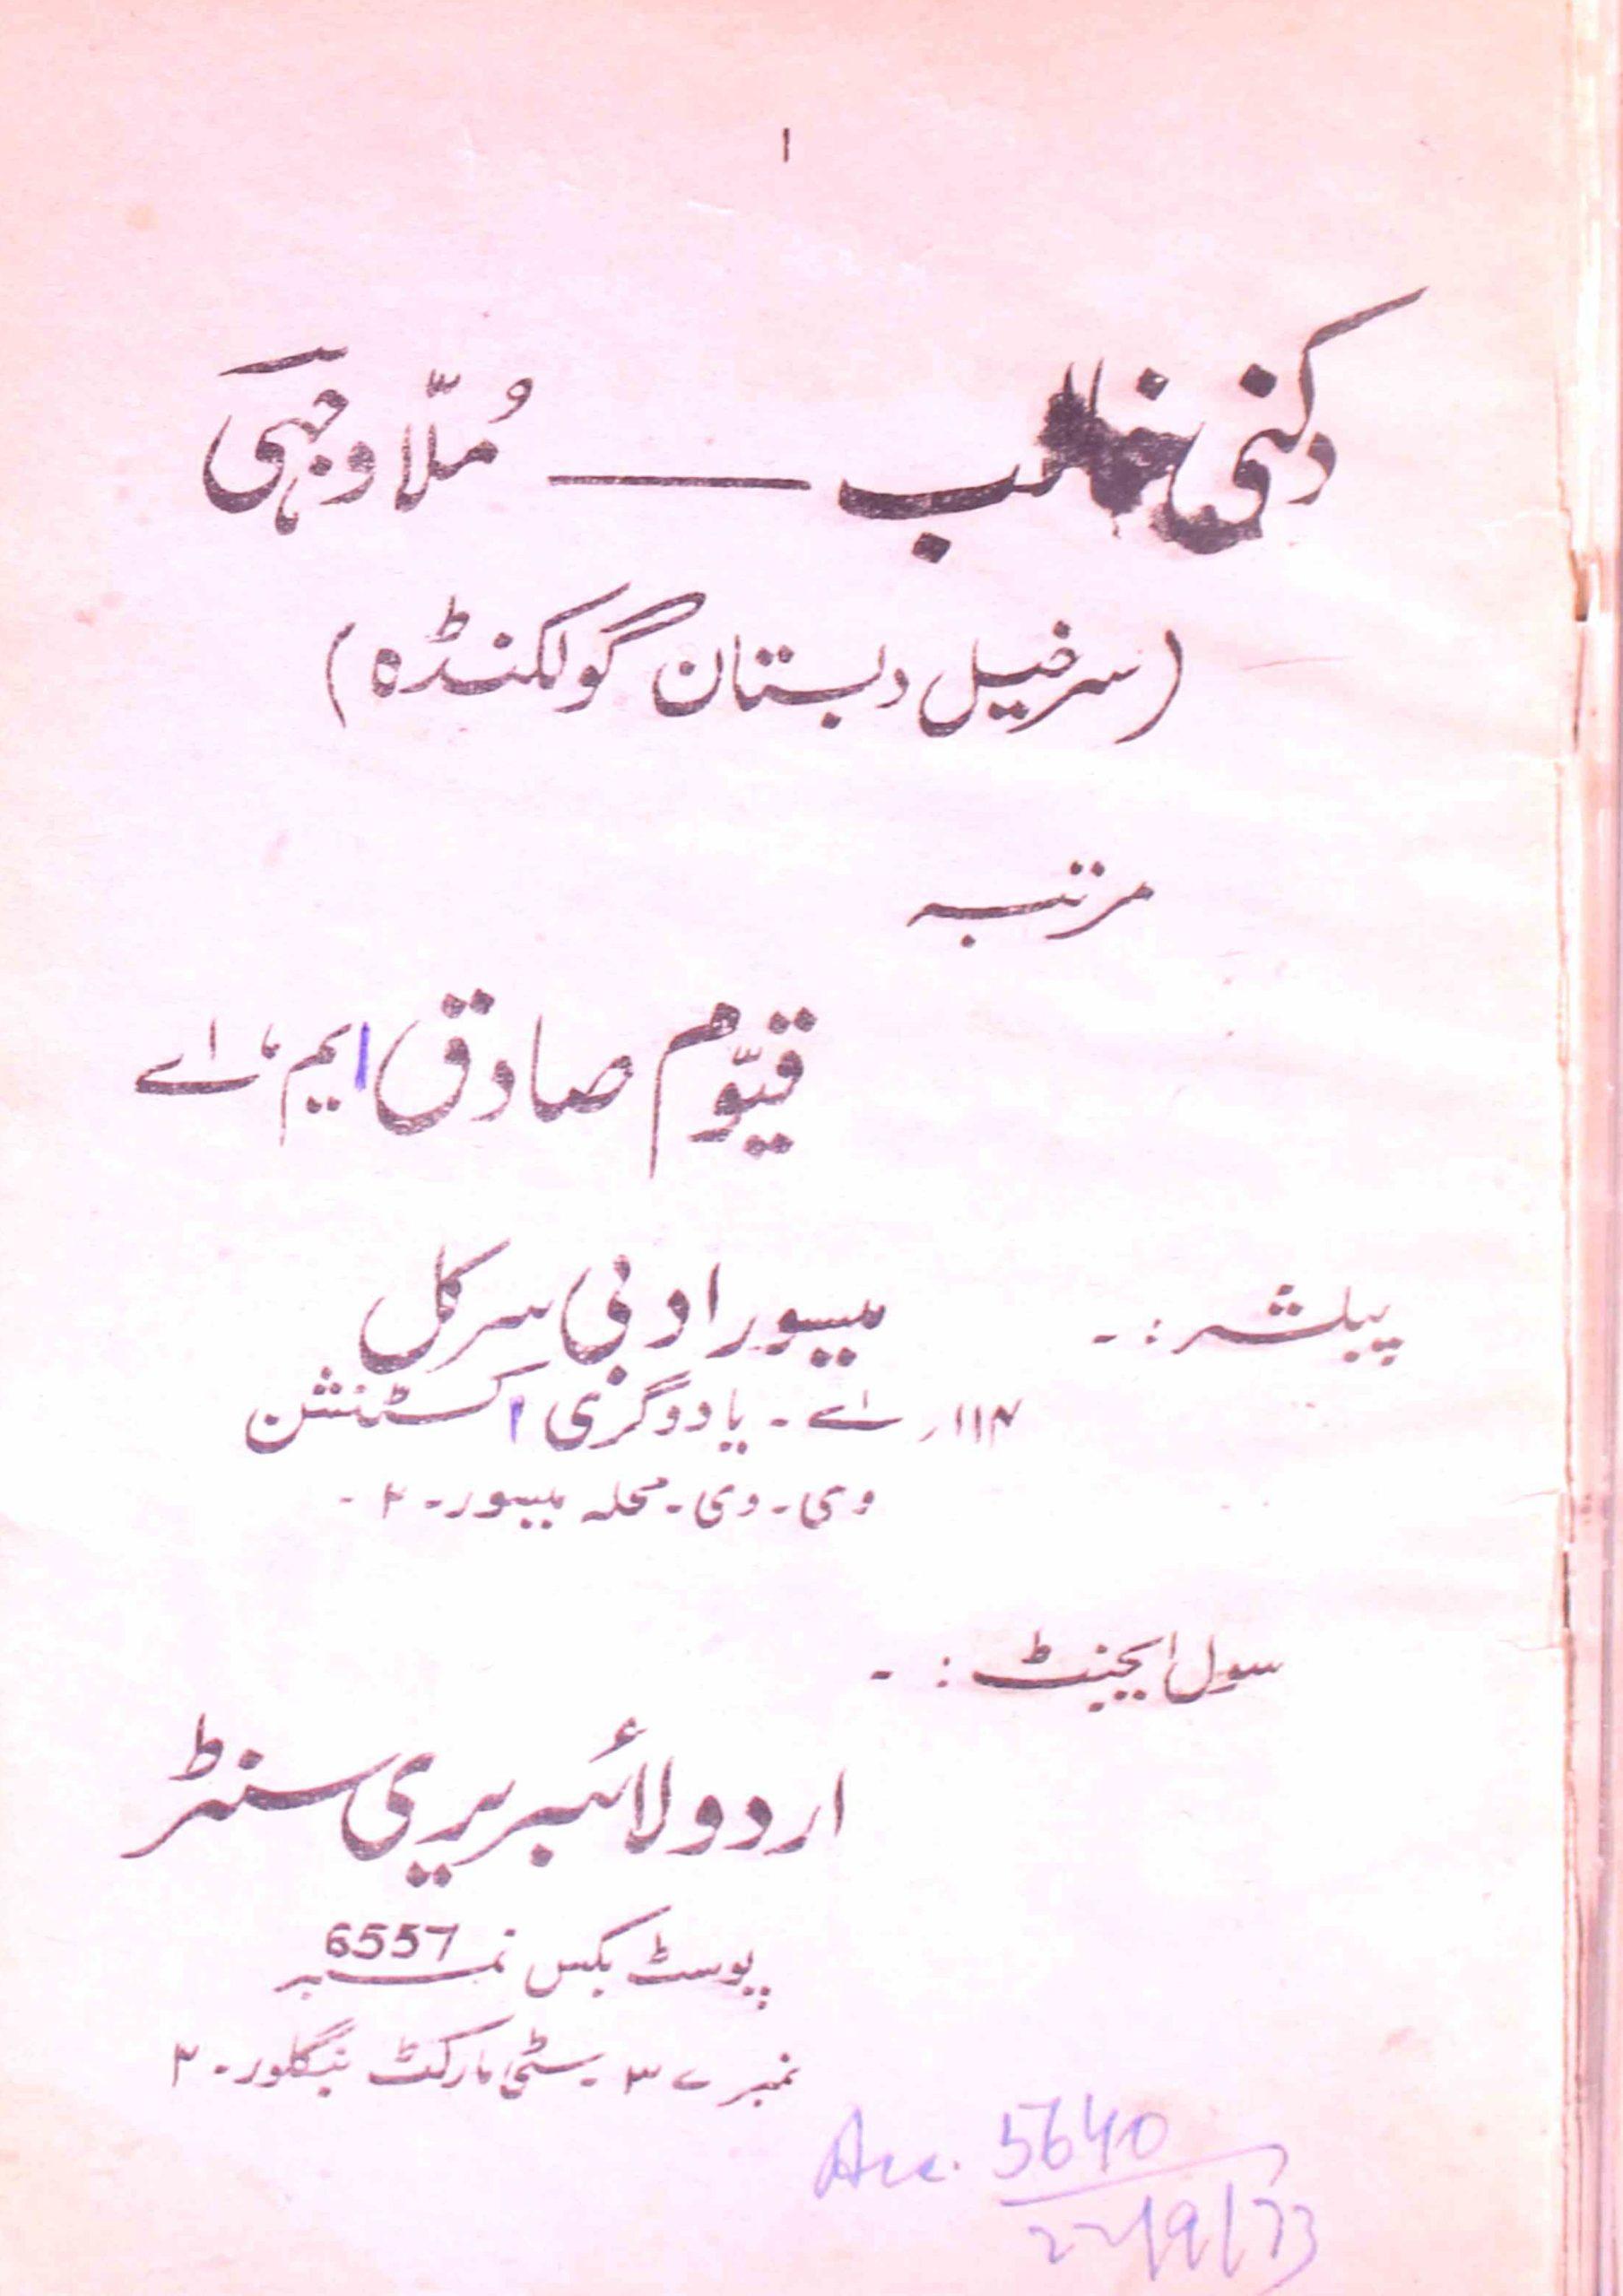 ۱
دکنی غالب ـــــ مُلّا وجہی
(سرخیل دبستان گولکنڈہ)
مرتبہ
قیّوم صادق ایم، اے
پبلشر :۔ میسور ادبی سرکل
۱۱۴؍ اے ۔ یادوگری اکسٹنشن
وی ۔ وی ۔ محلہ میسور ۔ ۲ ۔
سول ایجنٹ : ۔
اردو لائبریری سنٹر
پوسٹ بکس نمبر 6557
نمبر ۳ ۔ سٹی مارکٹ بنگلور ۔ ۲
Acc. 5640
22/9/73